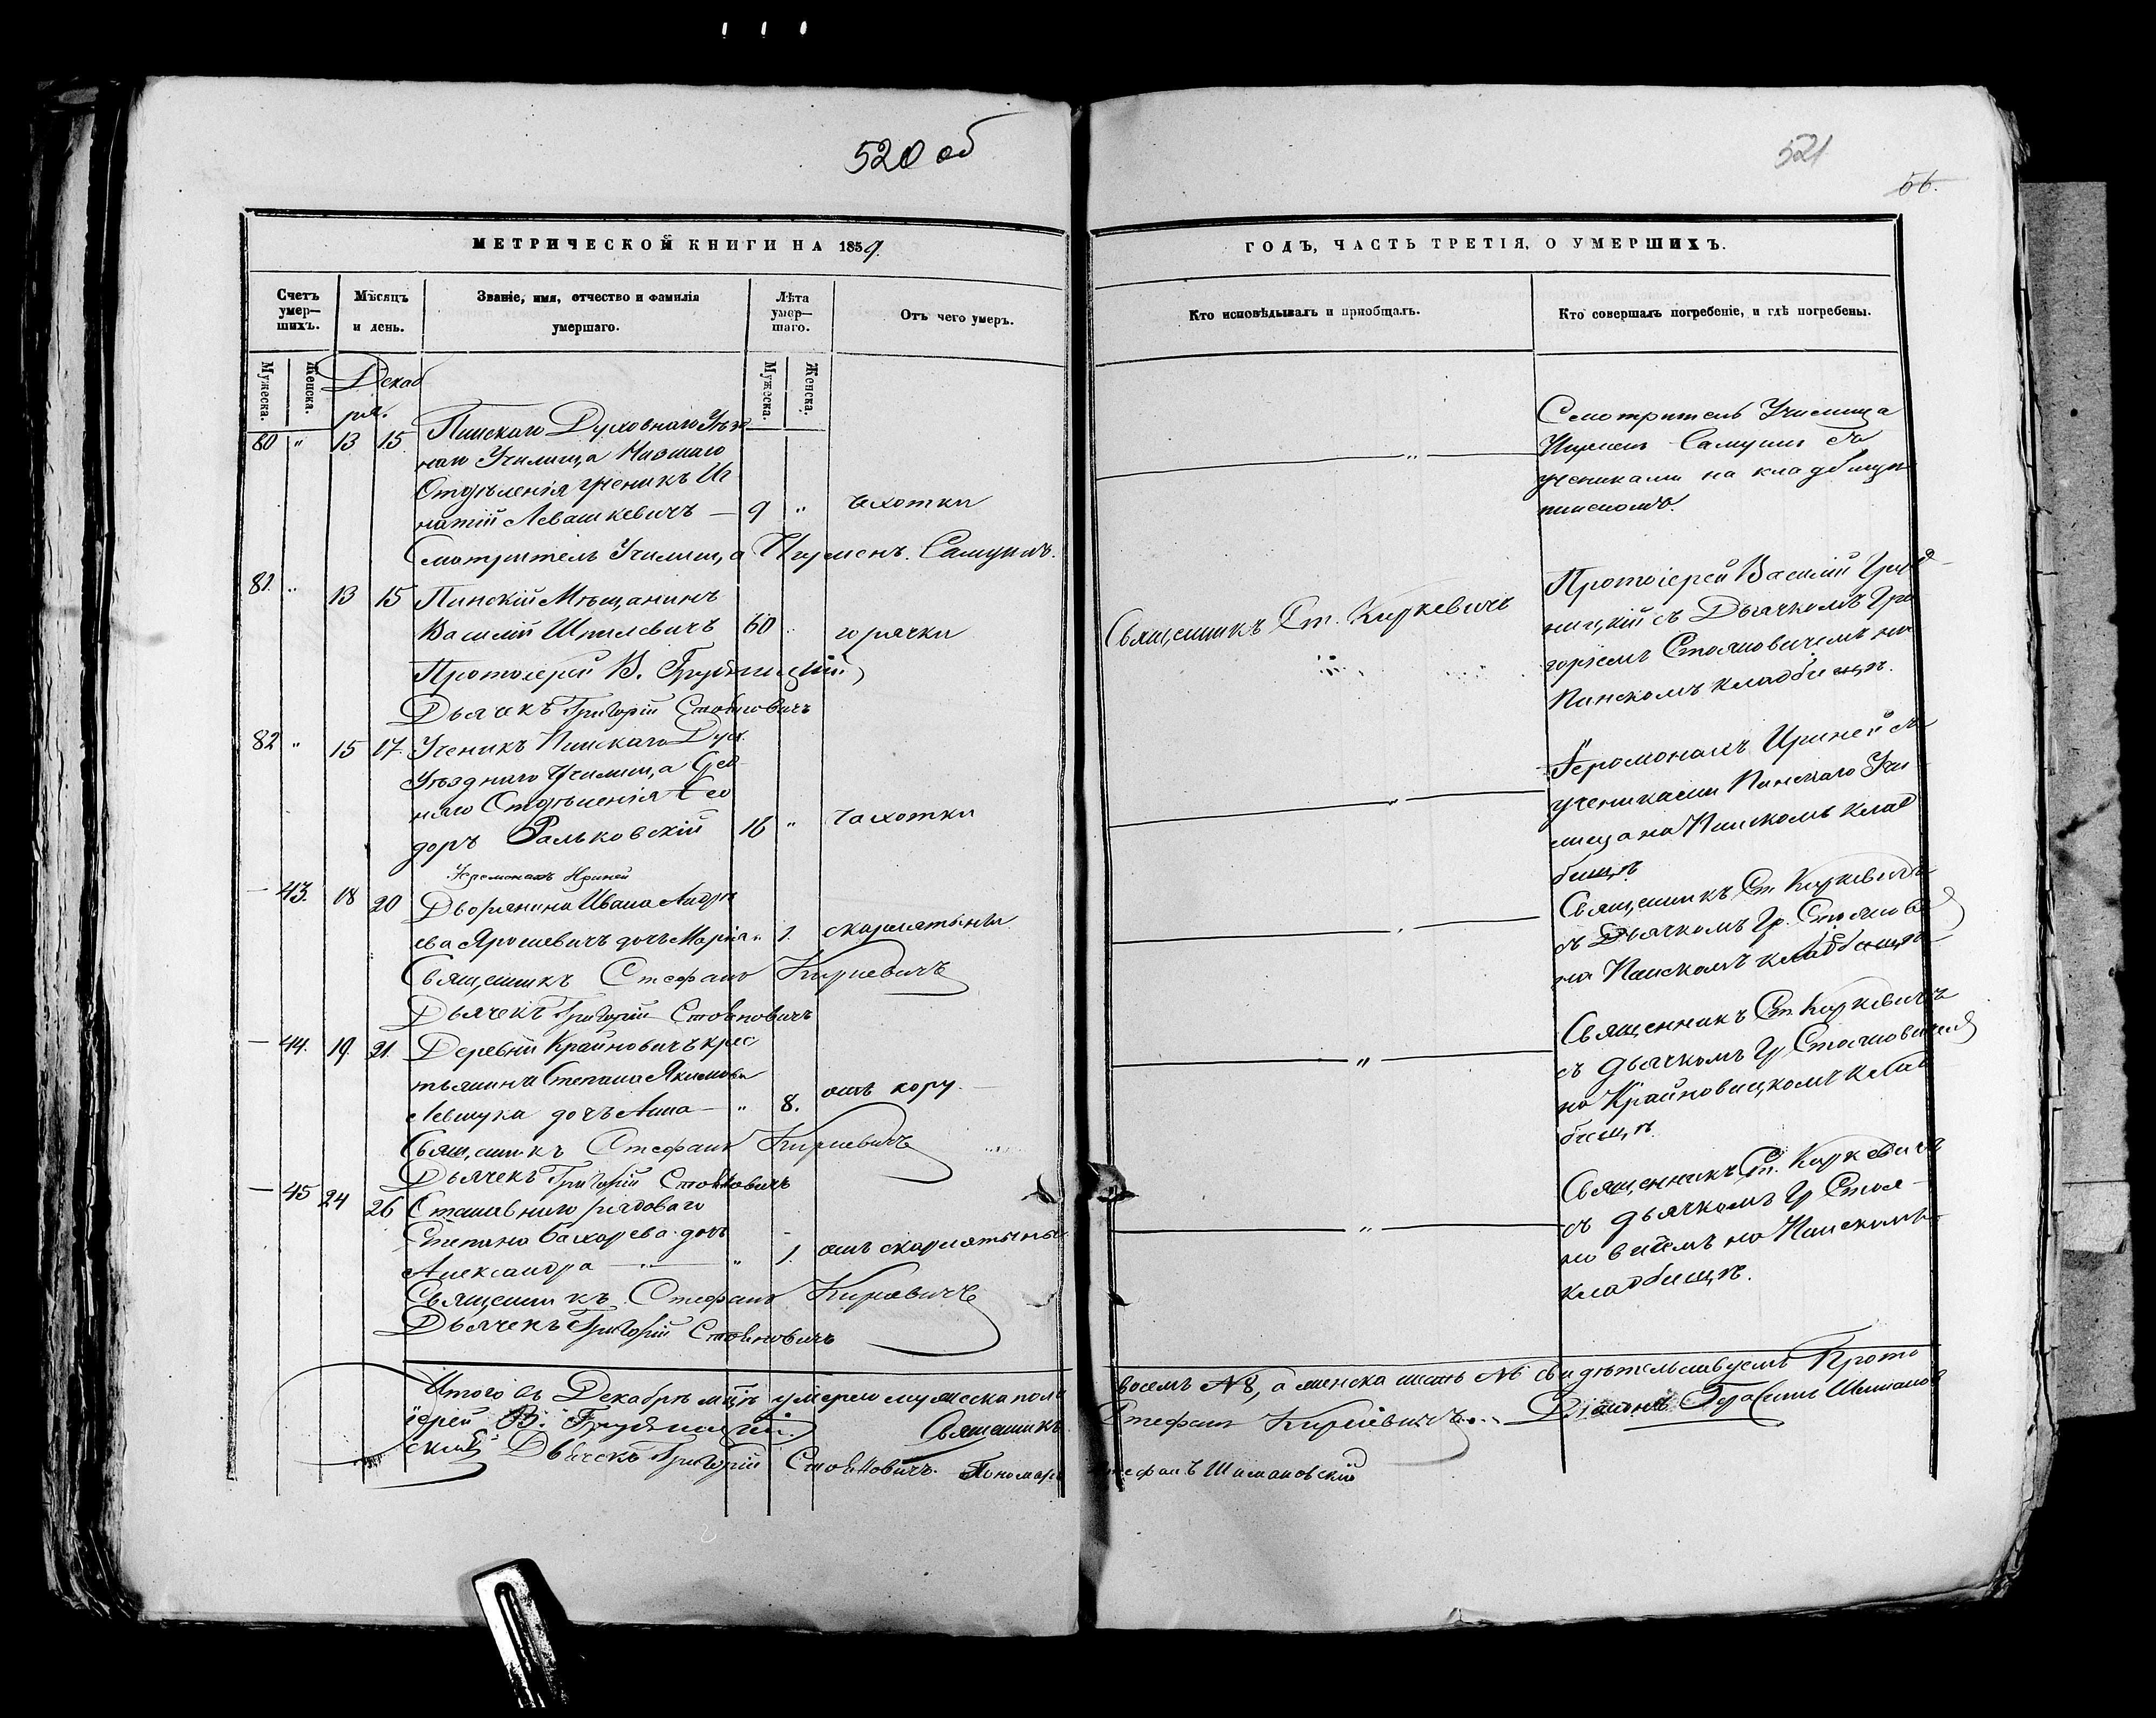 520 об
521
56.
МЕТРИЧЕСКОЙ КНИГИ НА 1859
ГОДЪ, ЧАСТЬ ТРЕТІЯ, О УМЕРШИХЪ.
Счетъ умер—шихъ.
Мѣсяцъ и день.
Званіе, имя, отчество и фамилія умершаго.
Лѣта умер—шаго.
Отъ чего умеръ.
Кто исповѣдывалъ и пріобщалъ.
Кто совершалъ погребеніе, и гдѣ погребены.
Мужеска.
Женска.
Мужеска.
Женска.
Декаб
ря.
80 " 13 15 Пинскаго Духовнаго Уѣзд
наго Училища Низшаго
Отдѣленія ученикъ Иг
натій Левашкевичъ — 9 " чахотки
Смотритель Училища Игуменъ Самуилъ.
Смотритель Училища
Игуменъ Самуилъ съ
учениками на кладбищѣ
пинскомъ.
81. " 13 15 Пинскій Мѣщанинъ
Василій Шпилевичъ 60 " горячки
Протоіерей В. Грудницкій
Дьячекъ Григорій Стояновичъ
Священникъ Ст. Киркевичъ
Протоіерей Василій Груд
ницкій съ Дьячкомъ Гри
горіемъ Стояновичемъ на
Пинскомъ кладбищѣ.
82 " 15 17. Ученикъ Пинскаго Дух.
Уѣзднаго Училища Сред
няго Отдѣленія Ѳео
доръРальковскій 16 " чахотки
Іеромонахъ Ириней
Іеромонахъ Ириней съ
учениками Пинскаго Учи
лища на Пинскомъ клад
бищѣ.
— 43. 18 20 Дворянина Ивана Андре
ева Ярошевичъ дочь Марія " 1. скарлатыны
Священникъ Стефанъ Киркевичъ
Дьячекъ Григорій Стояновичъ
Священникъ Ст. Киркевичъ
съ Дьячкомъ Гр. Стоянов
на Пинскомъ кладбищѣ
— 44. 19. 21. Деревни Крайновичъ крес
тьянина Степана Якимова
Левчука дочь Анна — " 8. отъ кору. —
Священникъ Стефанъ Киркевичъ
Дьячекъ Григорій Стояновичъ
Священникъ Ст. Киркевичъ
съ дьячкомъ Гр. Стояновичемъ
на Крайновицкомъ клад
бищѣ.
— 45 24 26 Отставнаго рядоваго
Степана Бахарева дочь
Александра — " — " 1. отъ скарлатыны
Священникъ Стефанъ Киркевичъ
Дьячекъ Григорій Стояновичъ
Священникъ Ст. Киркевичъ
съ дьячкомъ Гр. Стоя—
новичемъ на Пинскомъ
кладбищѣ.
Итого въ Декабрѣ м͠цѣ умерло мужеска пола восемь №8, а женска шесть №6 свидѣтельствуемъ Прото
іерей В. Грудницкій. Священникъ Стефанъ Киркевичъ. Діаконъ Герасимъ Шиманов
скій Дьячекъ Григорій Стояновичъ. Пономарь Стефанъ Шимановскій